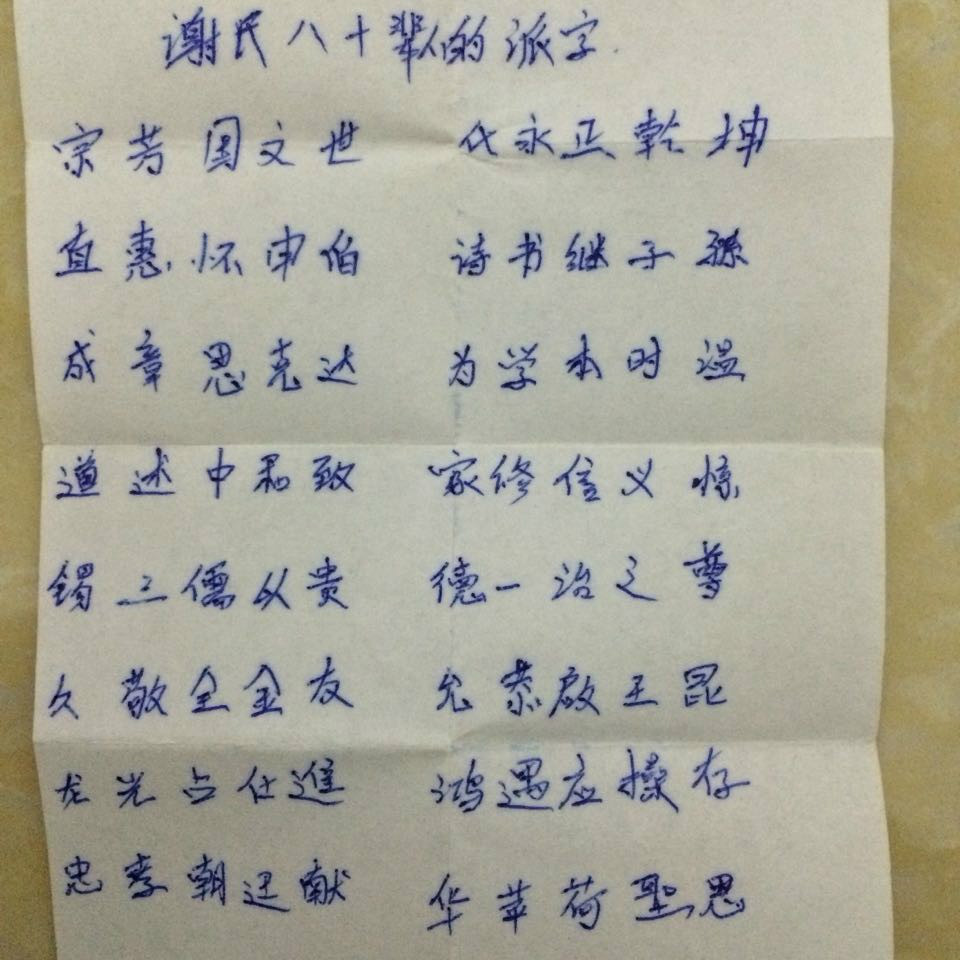 谢民八十辈人的派字.
宗芳国文世 代永正乾坤
直惠怀申伯 诗书继子孙
成章思克达 为学本时温
道述中和致 家修信义惇
锡三儒以贵 德一治之尊
久敬全金友 允恭启王昆
龙光占仕進 鸿遇应操存
忠孝朝廷献 华苹荷聖恩